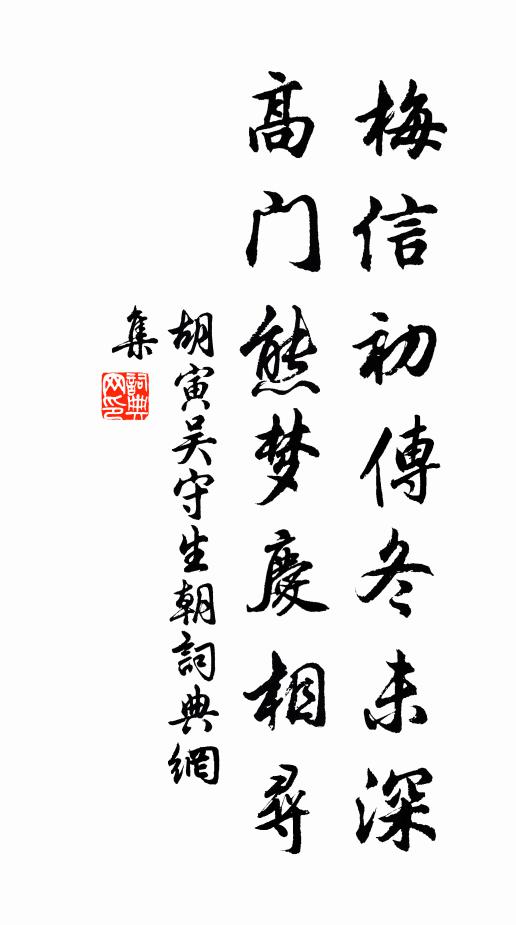 梅信初傳冬未深
高门熊梦慶相尋
胡寅吴守生朝詞典網
集
詞典网印